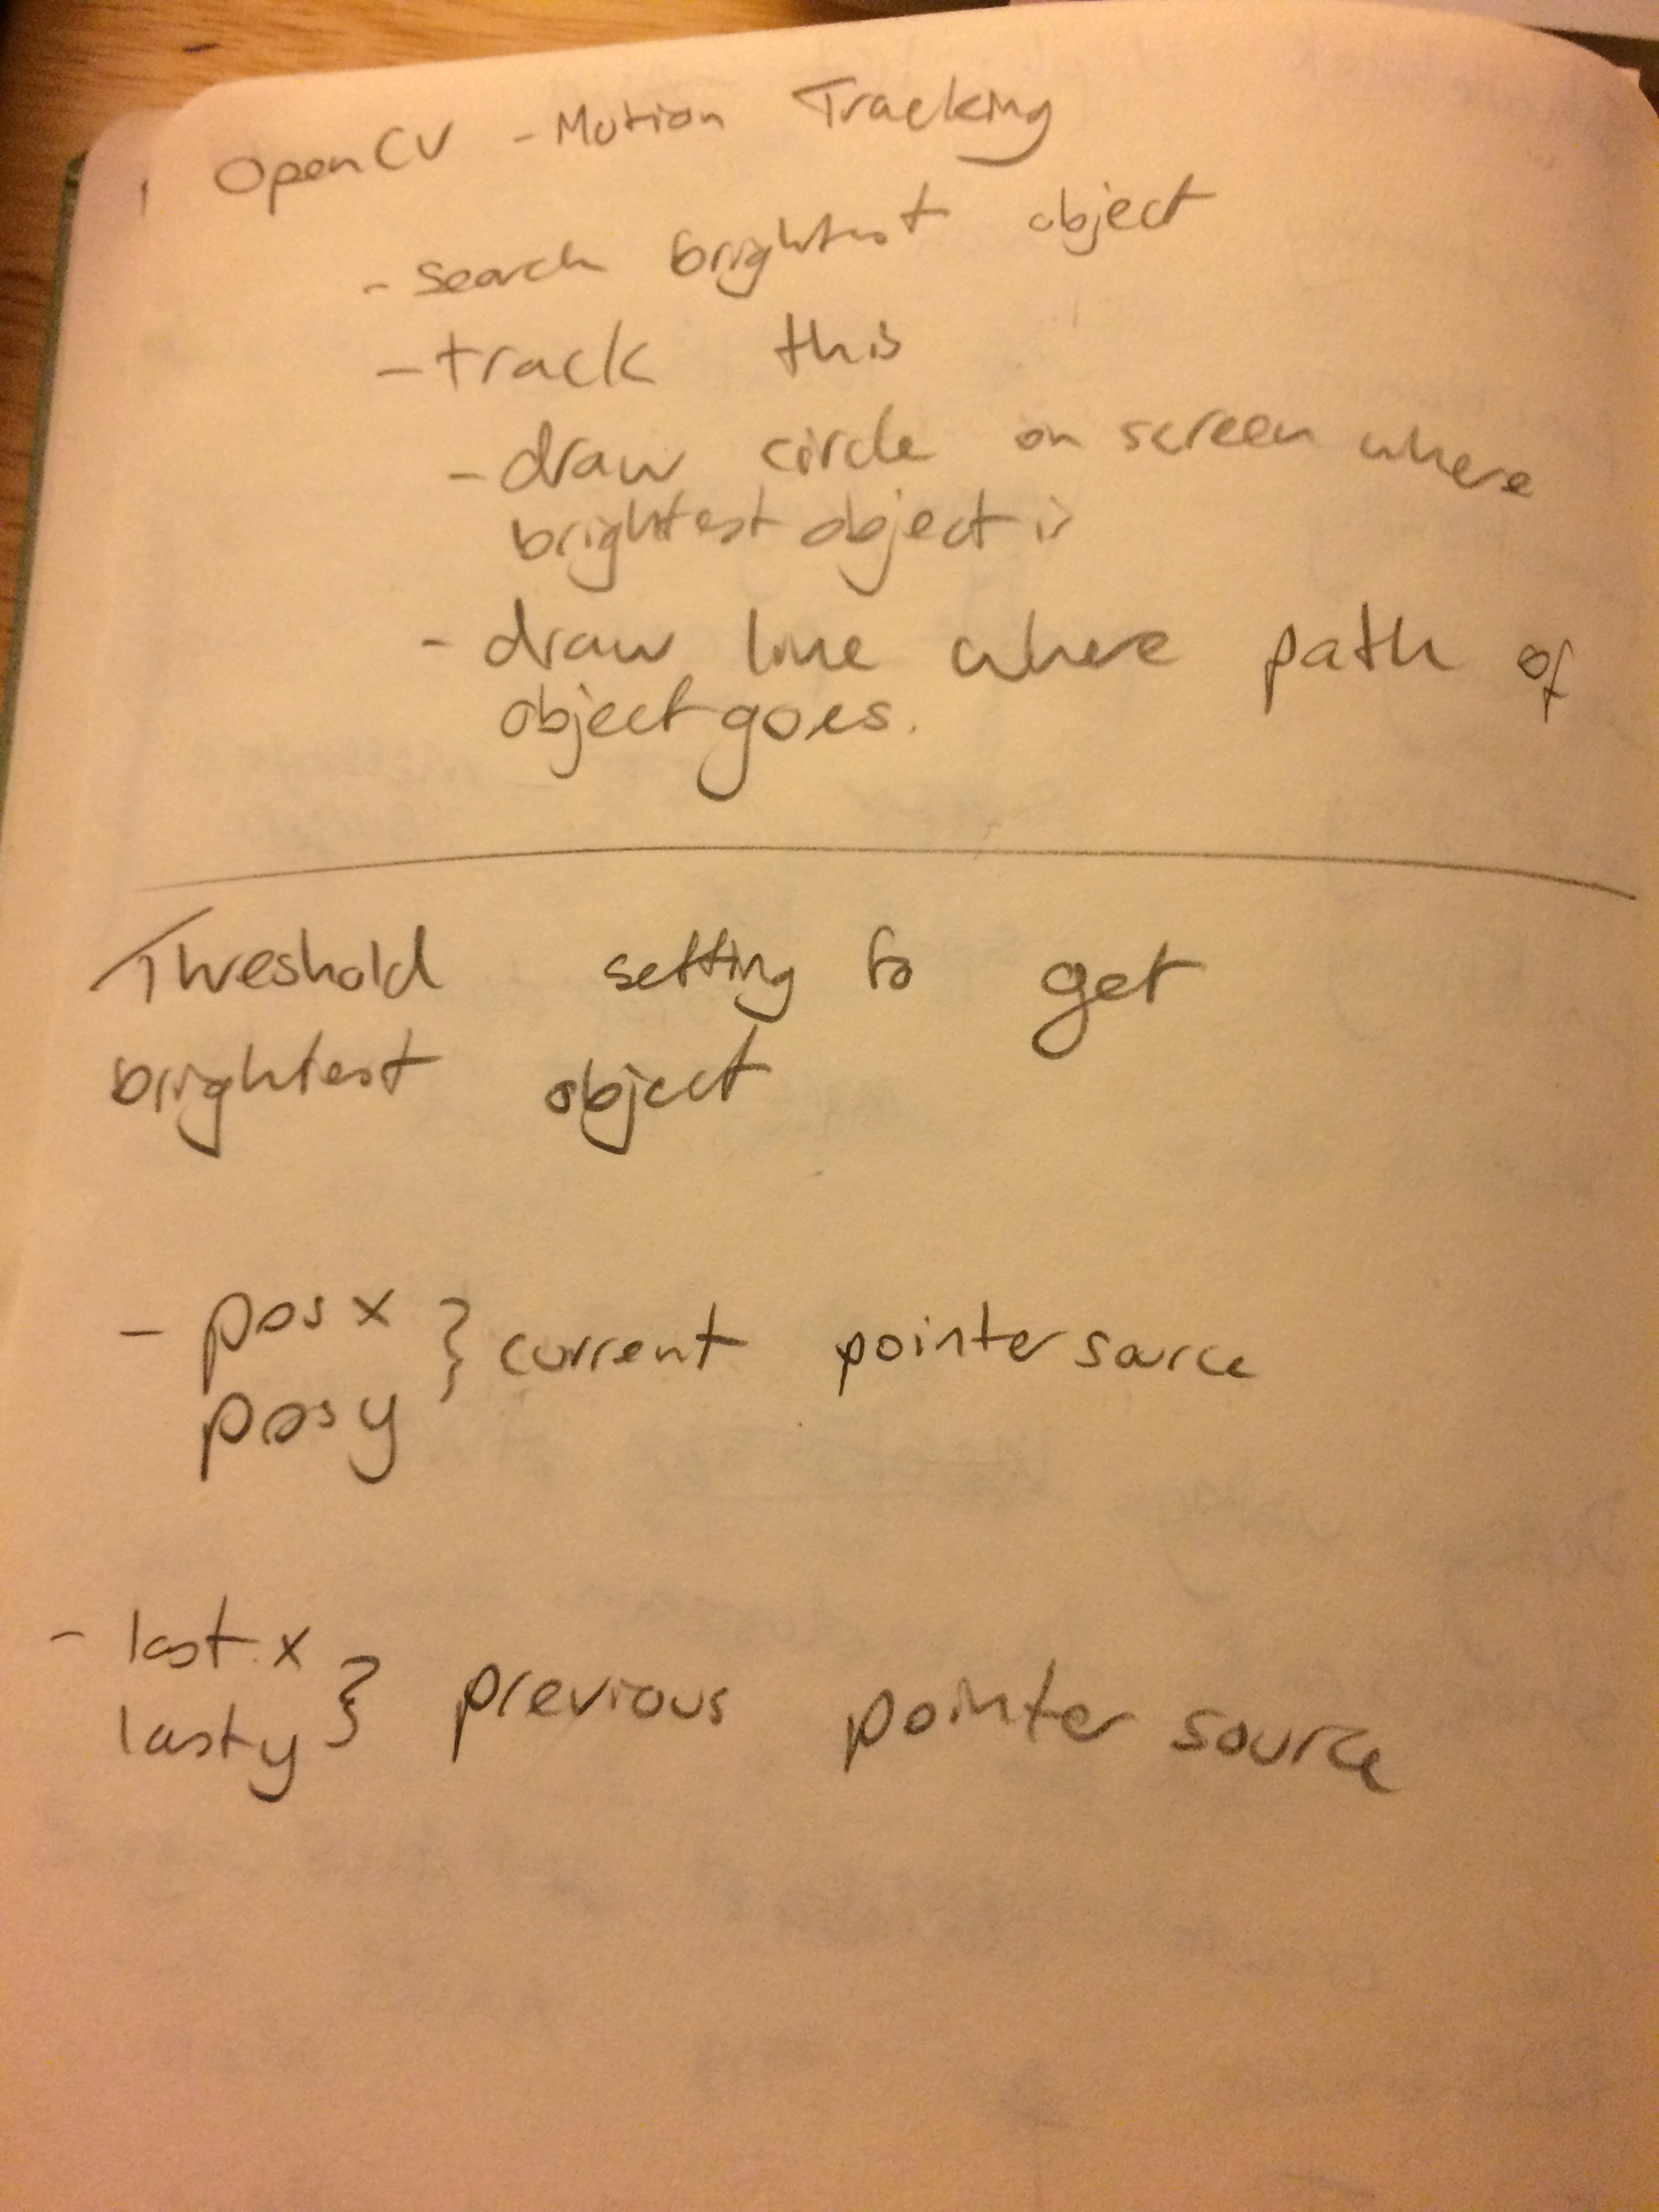 OpenCV - Motion Tracking
- search brightest object
- track this
- draw circle on screen where
brightest object is
- draw line where path of
object goes.
Threshold setting to get
brightest object
- pos x } current pointer source
pos y
- last x } previous pointer source
last y